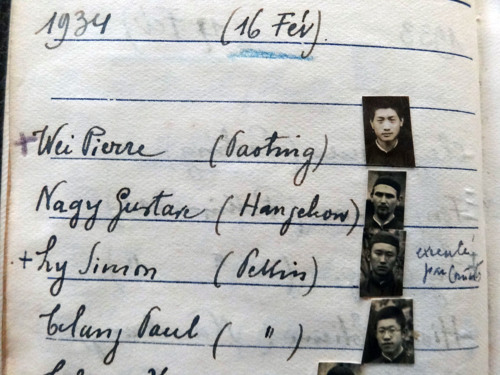 1934 (16 Fév)
+ Wei Pierre (Paoting)
Nagy Gustave (Hangchow)
+ Ly Simon (Pekin)
exécuté
par
Paul ( " )